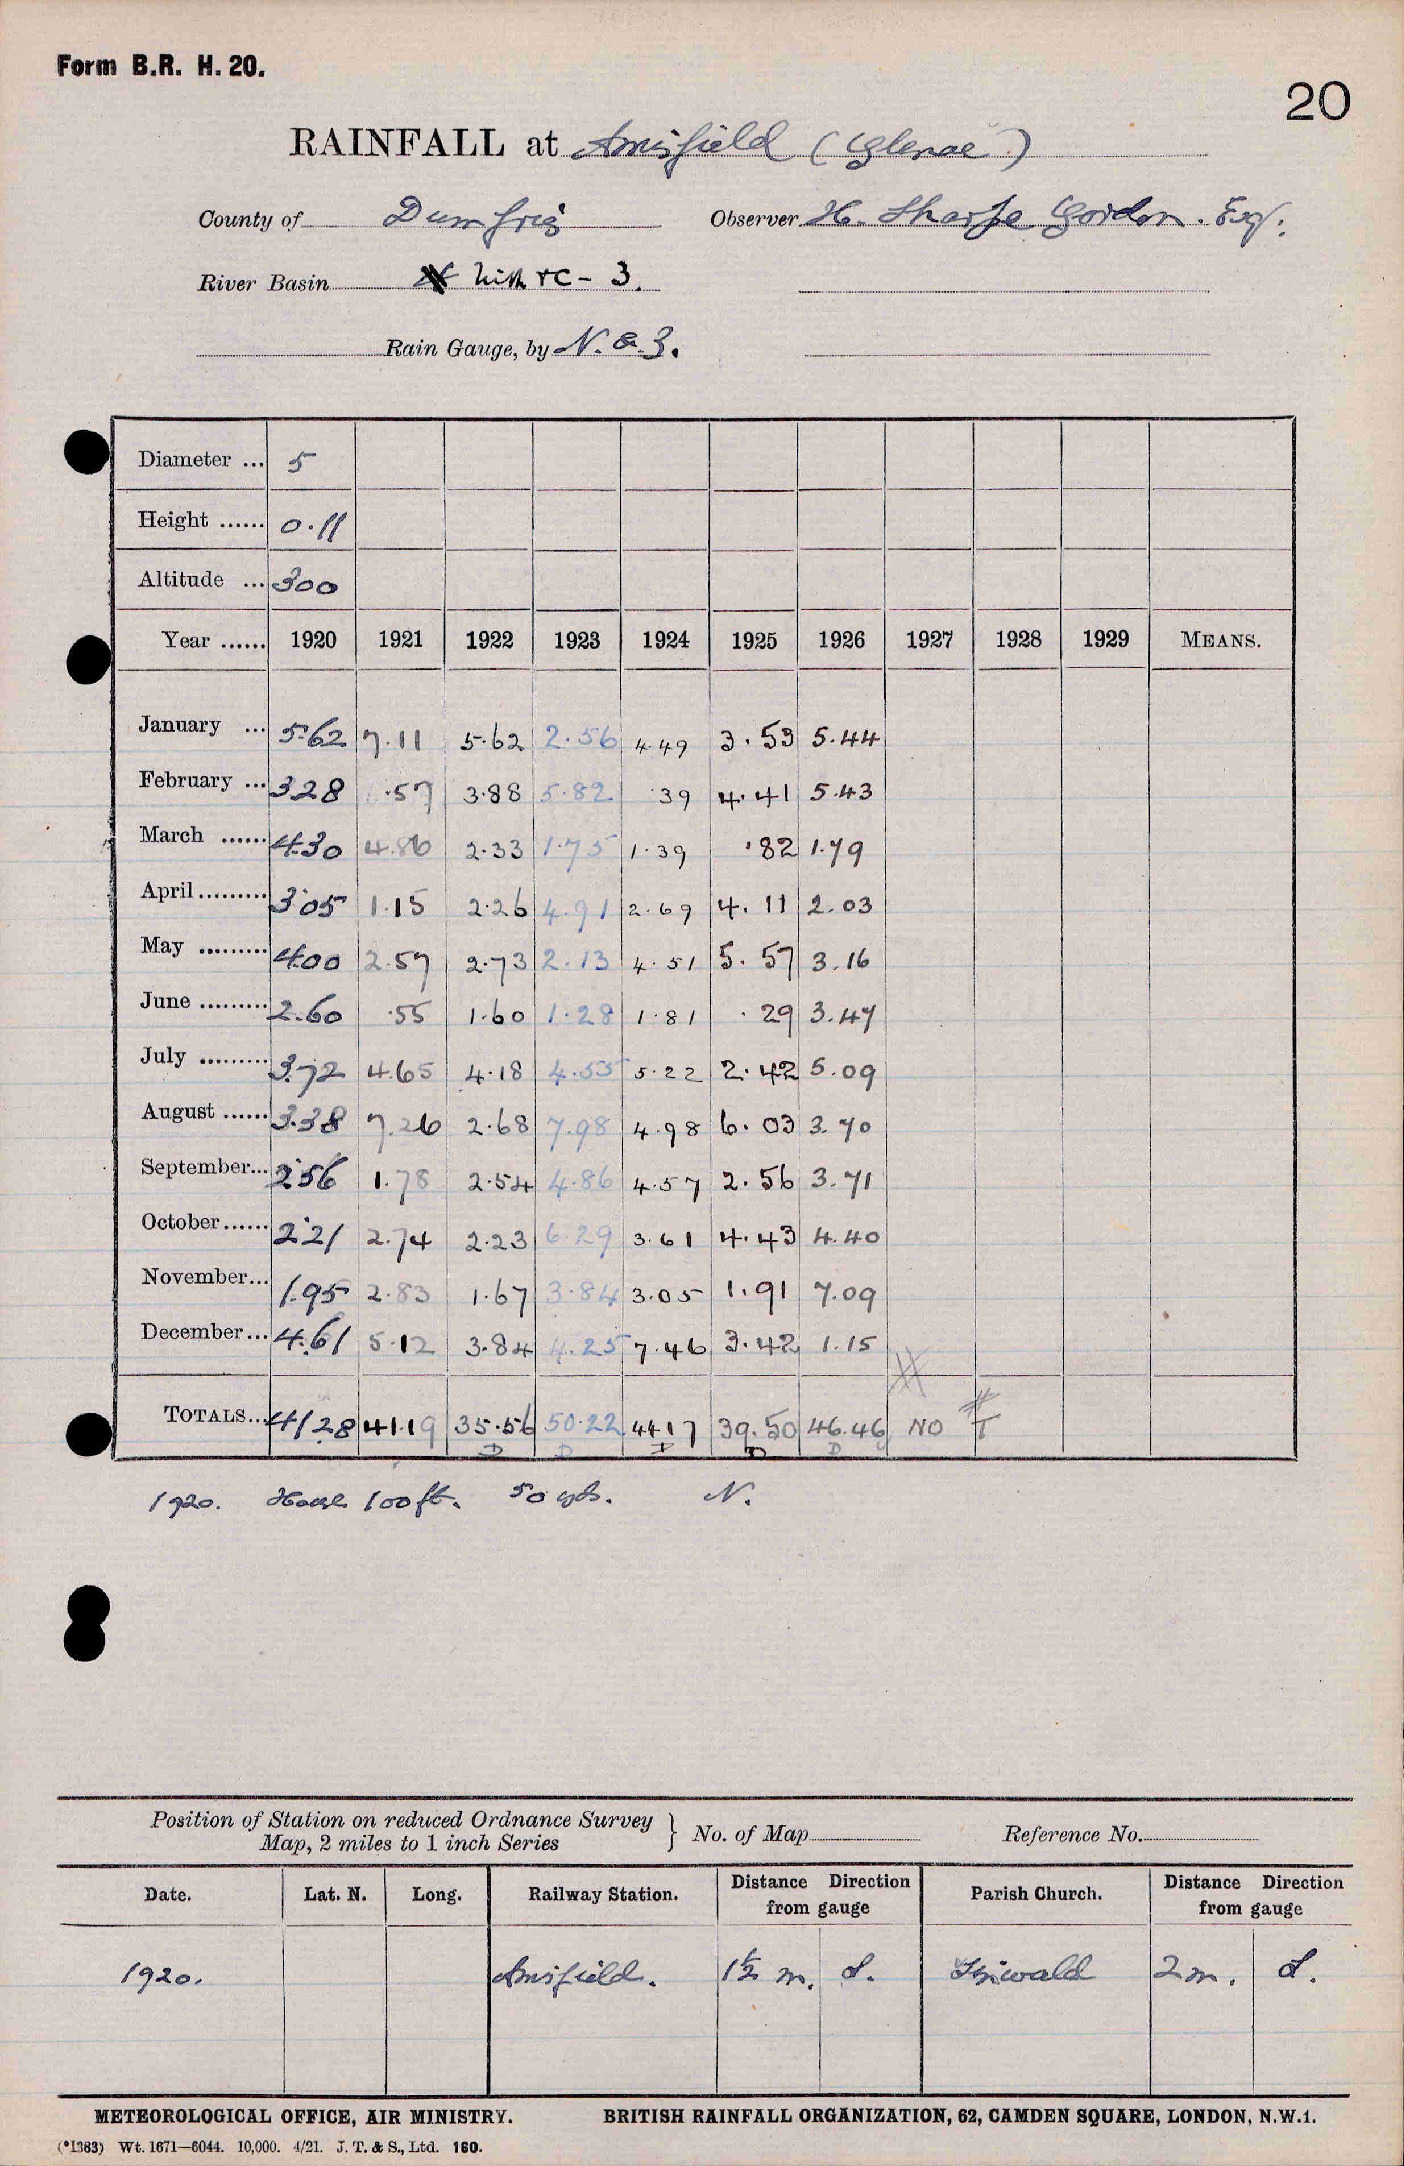 Form B.R. H. 20.
20
RAINFALL at Amisfield (Glenae)
County of Dumfries Observer H. Sharpe Gordon. Esq.
River Basin Nith &c - 3.
Rain Gauge, by N. & Z.
Diameter ... 5
Height ...... 0.11
Altitude ... 300
Year ...... 1920 1921 1922 1923 1924 1925 1926 1927 1928 1929 MEANS.
January ... 5.62 7.11 5.62 2.56 4.49 3.53 5.44
February ... 3.28 .57 3.88 5.82 .39 4.41 5.43
March ...... 4.30 4.86 2.33 1.75 1.39 .82 1.79
April ......... 3.05 1.15 2.26 4.91 2.69 4.11 2.03
May ......... 4.00 2.57 2.73 2.13 4.51 5.57 3.16
June ......... 2.60 .55 1.60 1.28 1.81 .29 3.47
July ......... 3.72 4.65 4.18 4.55 5.22 2.42 5.09
August ...... 3.38 7.26 2.68 7.98 4.98 6.03 3.70
September... 2.56 1.78 2.54 4.86 4.57 2.56 3.71
October...... 2.21 2.74 2.23 6.29 3.61 4.43 4.40
November... 1.95 2.83 1.67 3.84 3.05 1.91 7.09
December... 4.61 5.12 3.84 4.25 7.46 3.42 1.15
TOTALS... 41.28 41.19 35.56 50.22 44.17 39.50 46.46 NO T
D D D D D
1920. House 100 ft. 50 yds. N.
Position of Station on reduced Ordnance Survey
Map, 2 miles to 1 inch Series } No. of Map Reference No.
Date. Lat. N. Long. Railway Station. Distance from gauge Direction Parish Church. Distance from gauge Direction
1920. Amisfield. 1½ m. S. Tinwald 2 m. S.
METEOROLOGICAL OFFICE, AIR MINISTRY. BRITISH RAINFALL ORGANIZATION, 62, CAMDEN SQUARE, LONDON, N.W.1.
(*1383) Wt. 1671—6044. 10,000. 4/21. J. T. & S., Ltd. 160.